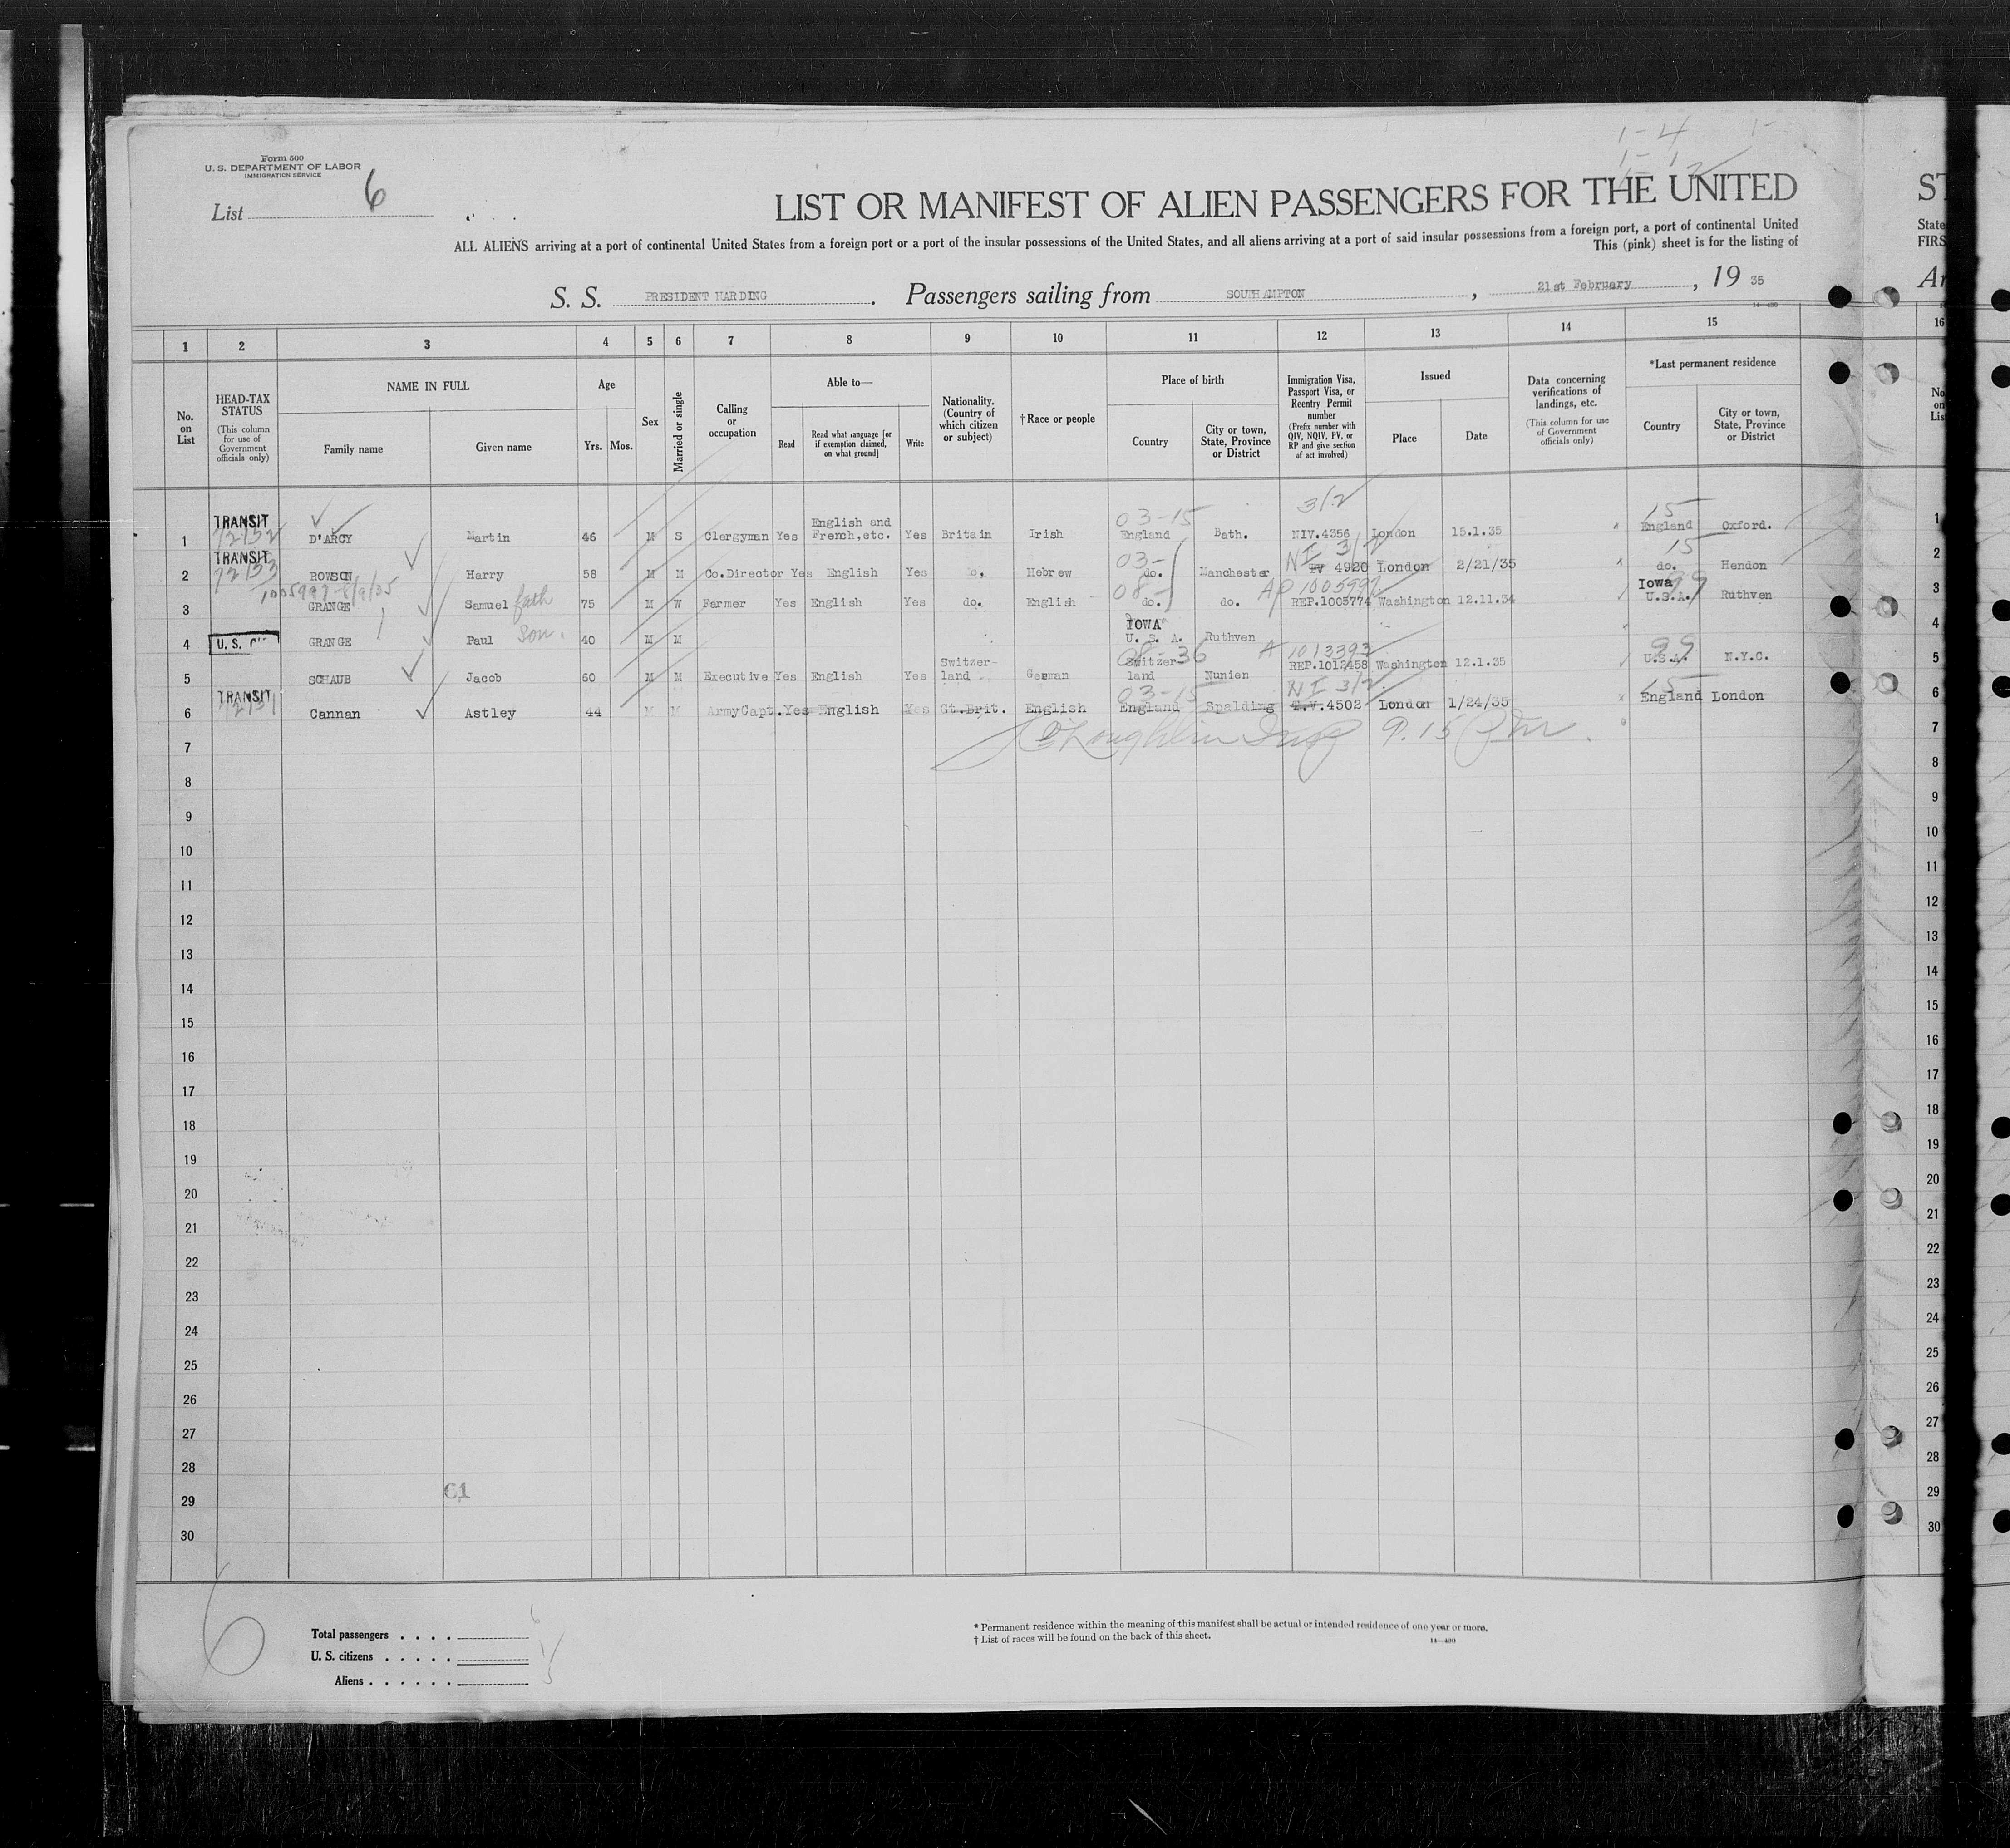 Form 500
U. S. DEPARTMENT OF LABOR
IMMIGRATION SERVICE
List 6
1- 4
1-
1- 1
LIST OR MANIFEST OF ALIEN PASSENGERS FOR THE UNITED
ST
ALL ALIENS arriving at a port of continental United States from a foreign port or a port of the insular possessions of the United States, and all aliens arriving at a port of said insular possessions from a foreign port, a port of continental United
State
This (pink) sheet is for the listing of
FIRS
S. S. PRESIDENT HARDING . Passengers sailing from SOUTHAMPTON , 21st February , 19 35
Ar
14—430
1 2 3 4 5 6 7 8 9 10 11 12 13 14 15
16
No. on List
HEAD-TAX STATUS
(This column for use of Government officials only)
NAME IN FULL
Family name
Given name
Age
Yrs. Mos.
Sex
Married or single
Calling or occupation
Able to—
Read
Read what language [or if exemption claimed, on what ground]
Write
Nationality. (Country of which citizen or subject)
† Race or people
Place of birth
Country
City or town, State, Province or District
Immigration Visa, Passport Visa, or Reentry Permit number
(Prefix number with QIV, NQIV, PV, or RP and give section of act involved)
Issued
Place
Date
Data concerning verifications of landings, etc.
(This column for use of Government officials only)
*Last permanent residence
Country
City or town, State, Province or District
No
on
Lis
1 TRANSIT 72132 D'ARCY Martin 46 M S Clergyman Yes English and French,etc. Yes Britain Irish 03-15 England Bath. 3/2 NIV.4356 London 15.1.35 15 England Oxford. 1
2 TRANSIT 72133 ROWSON Harry 58 M M Co.Director Yes English Yes do. Hebrew 03- do. Manchester NI 3/2 TV 4920 London 2/21/35 15 do. Hendon 2
3 1005997 8/9/35 GRANGE Samuel fath 75 M W Farmer Yes English Yes do. English 08- do. do. AP 1005997 REP.1005774 Washington 12.11.34 Iowa 99 U.S.A. Ruthven 3
4 U. S. GRANGE Paul son. 40 M M IOWA U. S. A. Ruthven 4
5 SCHAUB Jacob 60 M M Executive Yes English Yes Switzer-land German 08-36 Switzer-land Nunien A 1013393 REP.1012458 Washington 12.1.35 99 U.S.A. N.Y.C. 5
6 TRANSIT 72131 Cannan Astley 44 M M ArmyCapt. Yes English Yes Gt.Brit. English 03-15 England Spalding NI 3/2 T.V.4502 London 1/24/35 15 England London 6
7 O'Loughlin Insp 9.15 Pm. 7
8 8
9 9
10 10
11 11
12 12
13 13
14 14
15 15
16 16
17 17
18 18
19 19
20 20
21 21
22 22
23 23
24 24
25 25
26 26
27 27
28 28
29 29
30 30
6
Total passengers . . . . 6
U. S. citizens . . . . . 1
Aliens . . . . . . 5
* Permanent residence within the meaning of this manifest shall be actual or intended residence of one year or more.
† List of races will be found on the back of this sheet.
14—430